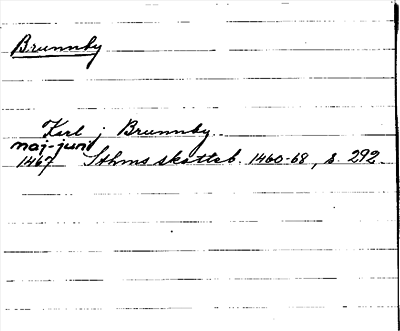 Brunnby
Karl j Brunnby.
maj-juni
1467 Sthms skatteb. 1460-68, s. 292.